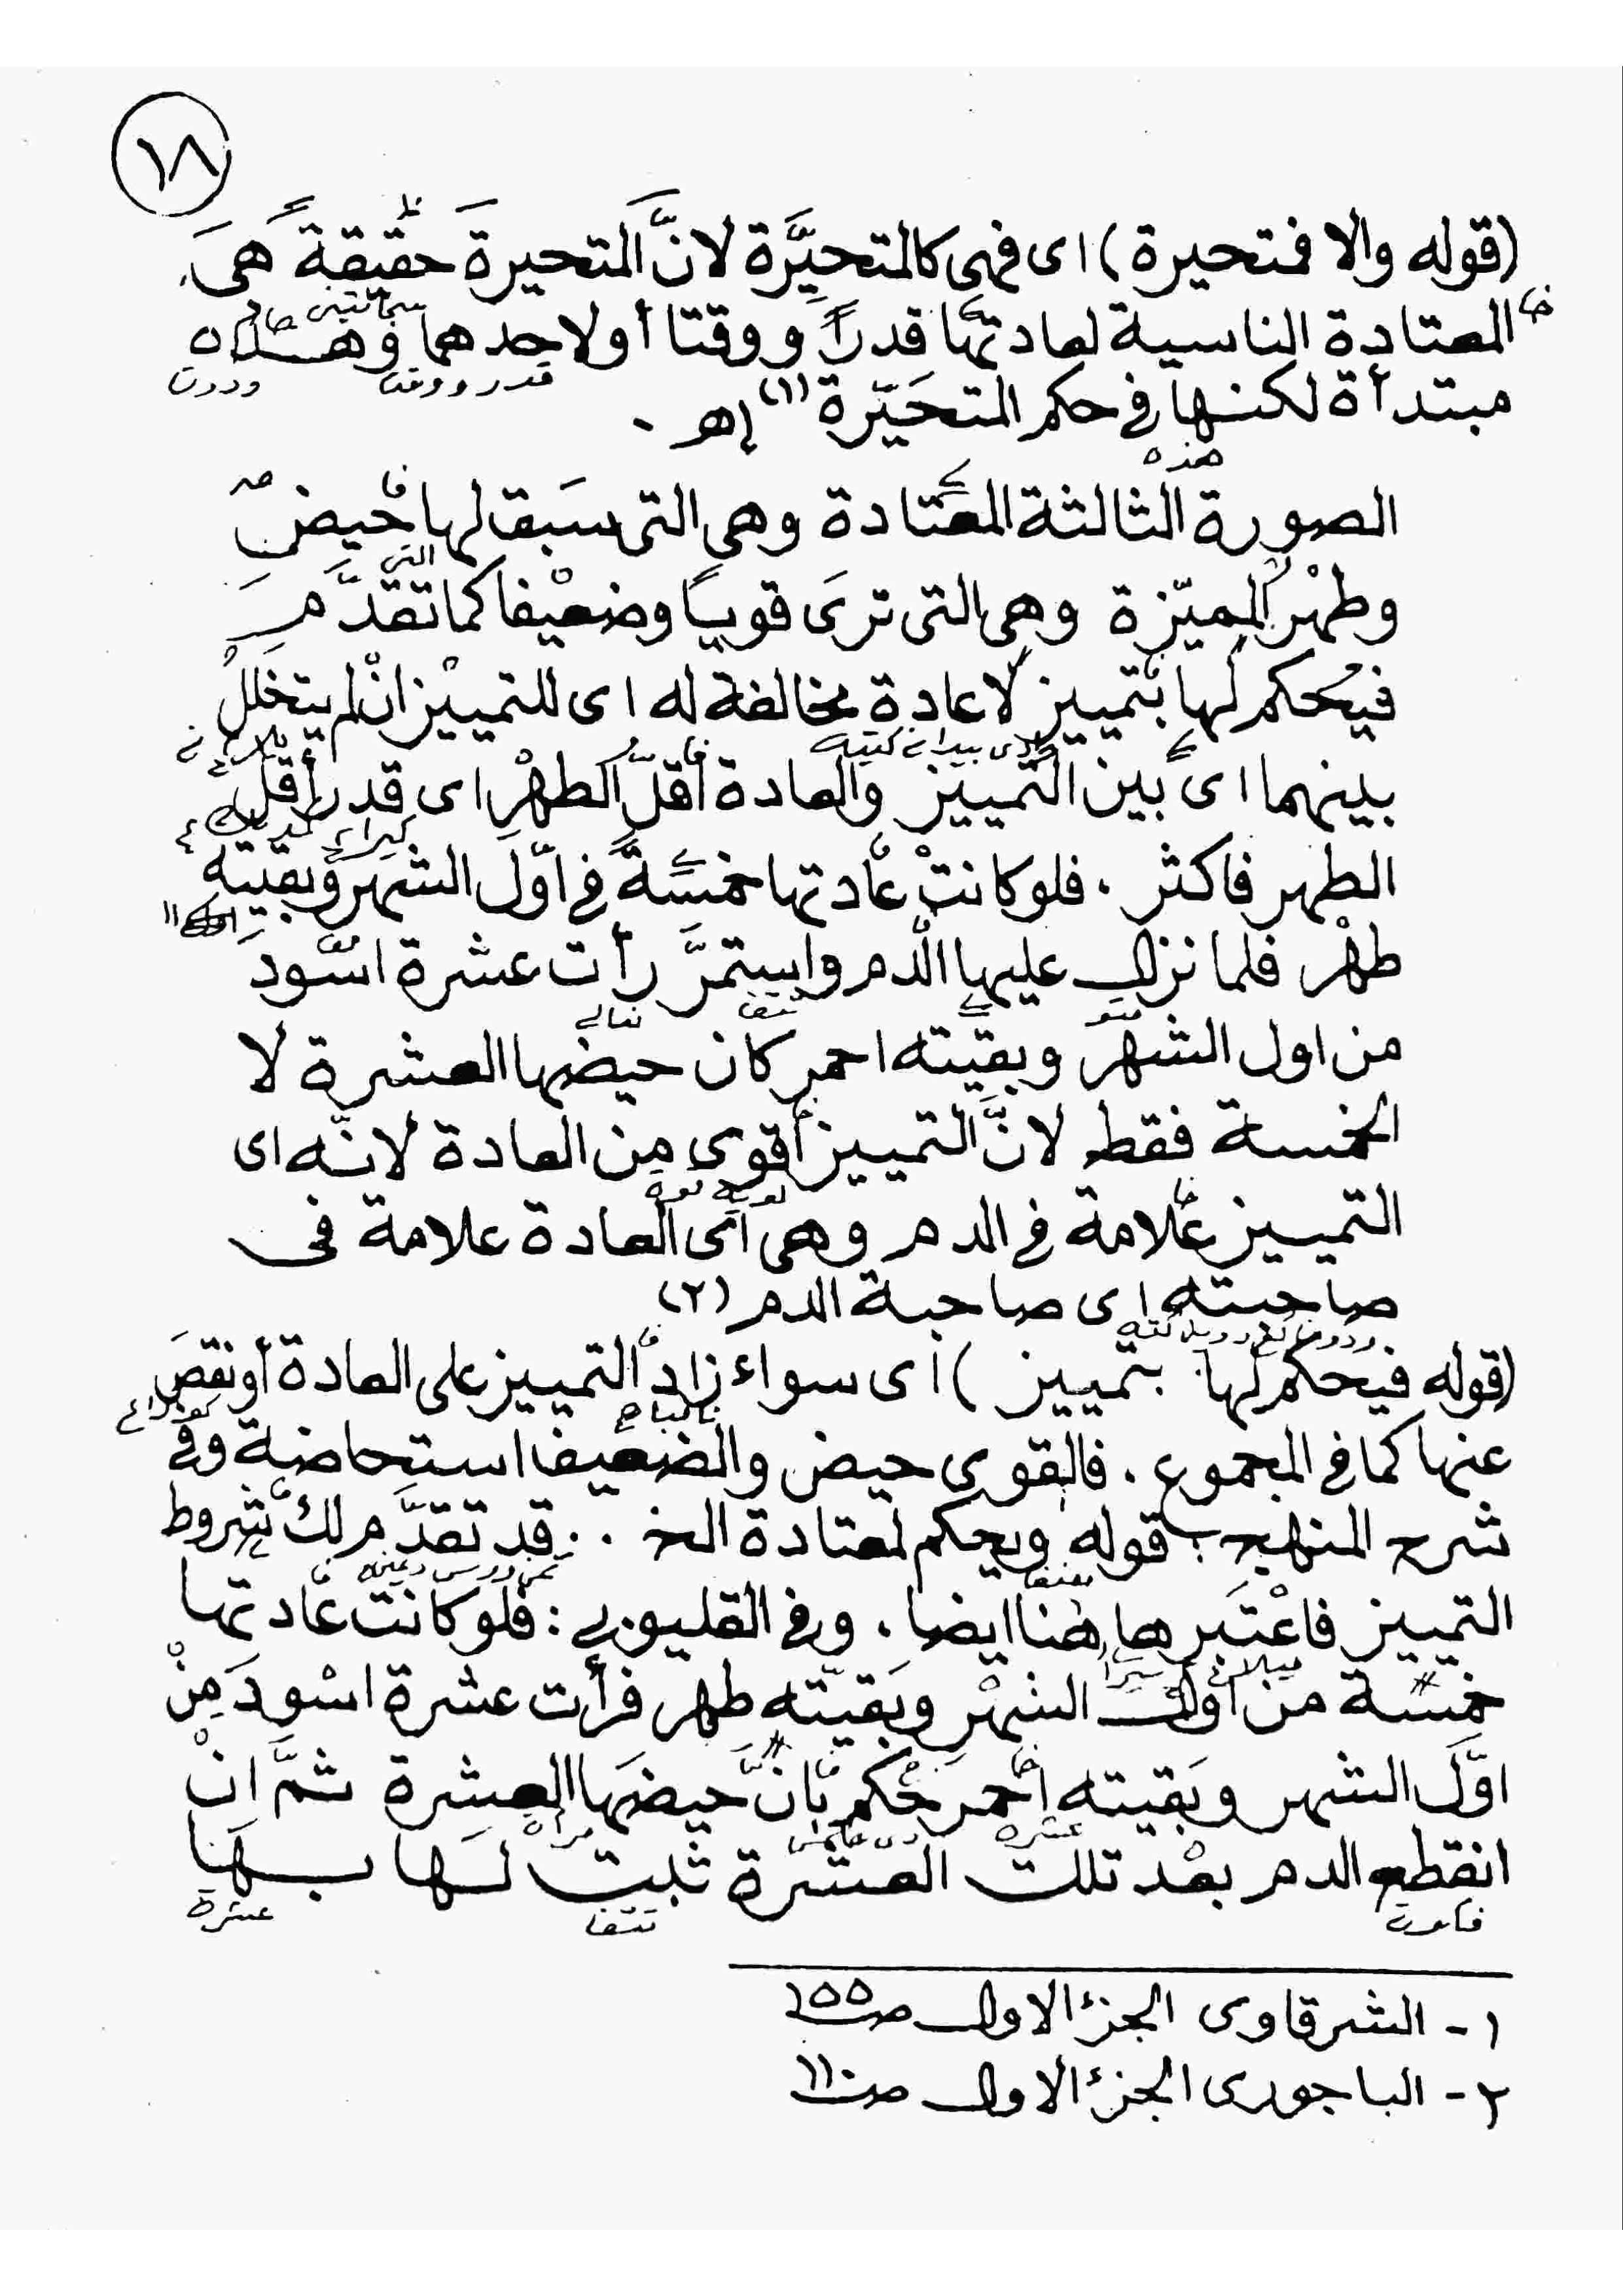 ١٨
(قوله والا فمتحيرة) اى فهى كالمتحيِّرة لانَّ المتحيرةَ حقيقةً هىَ
المعتادة الناسية لعادتها قدراً ووقتا أولاحدهما وهذه
مبتدأة لكنها فى حكم المتحَيّرة (١) إهـ .
هذه
الصورة الثالثة المعتادة وهى التى سَبقا لها حيضٌ
وطهْر المميّزة وهى التى ترىَ قويا وضعيفا كما تقدَّم
فيُحكم لها بتمييز لا عادة مخالفة له اى للتمييز انْ لم يتخللْ
بينهما اى بين التمييز والعادة أقلّ الطهْر اى قدر أقل
الطهر فاكثر . فلو كانتْ عادتها خمسةً فى اوّل الشهر وبقيته
طهْر فلما نزل عليها الدم واستمرَّ رأت عشرة اسْودَ
من اول الشهر وبقيته احمر كان حيضها العشرة لا
الخمسة فقط لانَّ التمييز أقوى من العادة لانّه اى
التمييز علامة فى الدم وهى اى العادة علامة فى
صاحبته اى صاحبة الدم (٢)
(قوله فيحكم لها بتمييز) اى سواء زاد التمييز على العادة أو نقصَ
عنها كما فى المجموع . فالقوى حيض والضعيف استحاضة وفى
شرح المنهج ؛ قوله ويحكم لمعتادة الخ . . قد تقدَّم لك شروط
التمييز فاعْتَبرها هنا ايضا . وفى القليوبي : فلو كانت عادتها
خمسة من اول الشهْر وبَقيّته طهر فرأت عشرة اسْودَ مِنْ
اوّل الشهر وبَقيته احمرَ حُكم بانَّ حيضَها العشرة ثمَّ انْ
انقطع الدم بعْد تلك العشرة ثبت لها بها
قدر ووقتا
عشرة
١ - الشرقاوى الجزء الاول صـ ١٥٥
٢ - الباجورى الجزء الاول صـ ١١٠